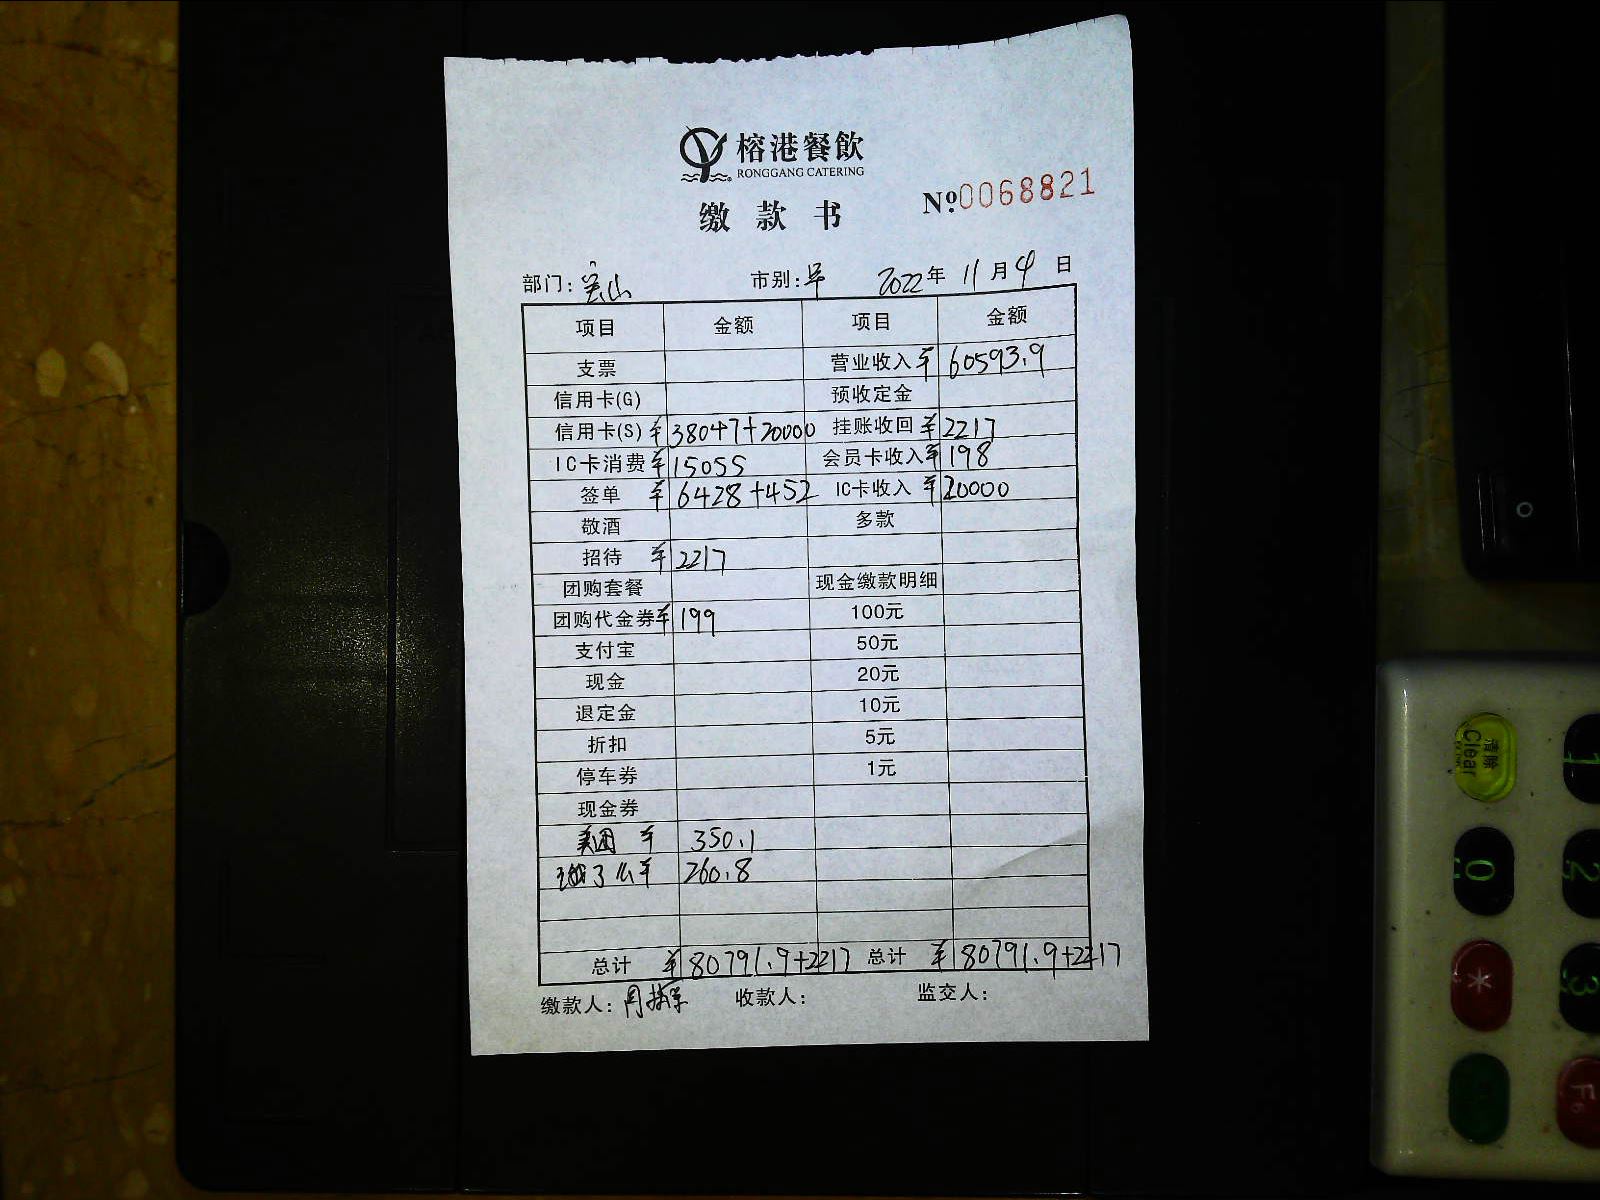 榕港餐飲
RONGGANG CATERING
缴款书
№0068821
部门: 宝山 市别: 早 2022年 11月4日
项目 金额 项目 金额
支票 营业收入 ¥ 60593.9
信用卡(G) 预收定金
信用卡(S) ¥ 38047+20000 挂账收回 ¥ 2217
IC卡消费 ¥ 15055 会员卡收入 ¥ 198
签单 ¥ 6428+452 IC卡收入 ¥ 20000
敬酒 多款
招待 ¥ 2217
团购套餐 现金缴款明细
团购代金券 ¥ 199 100元
支付宝 50元
现金 20元
退定金 10元
折扣 5元
停车券 1元
现金券
美团 ¥ 350.1
饿了么 ¥ 260.8
总计 ¥ 80791.9+2217 总计 ¥ 80791.9+2217
缴款人: 周 收款人: 监交人:
清除
Clear
1
0
2
*
3
F